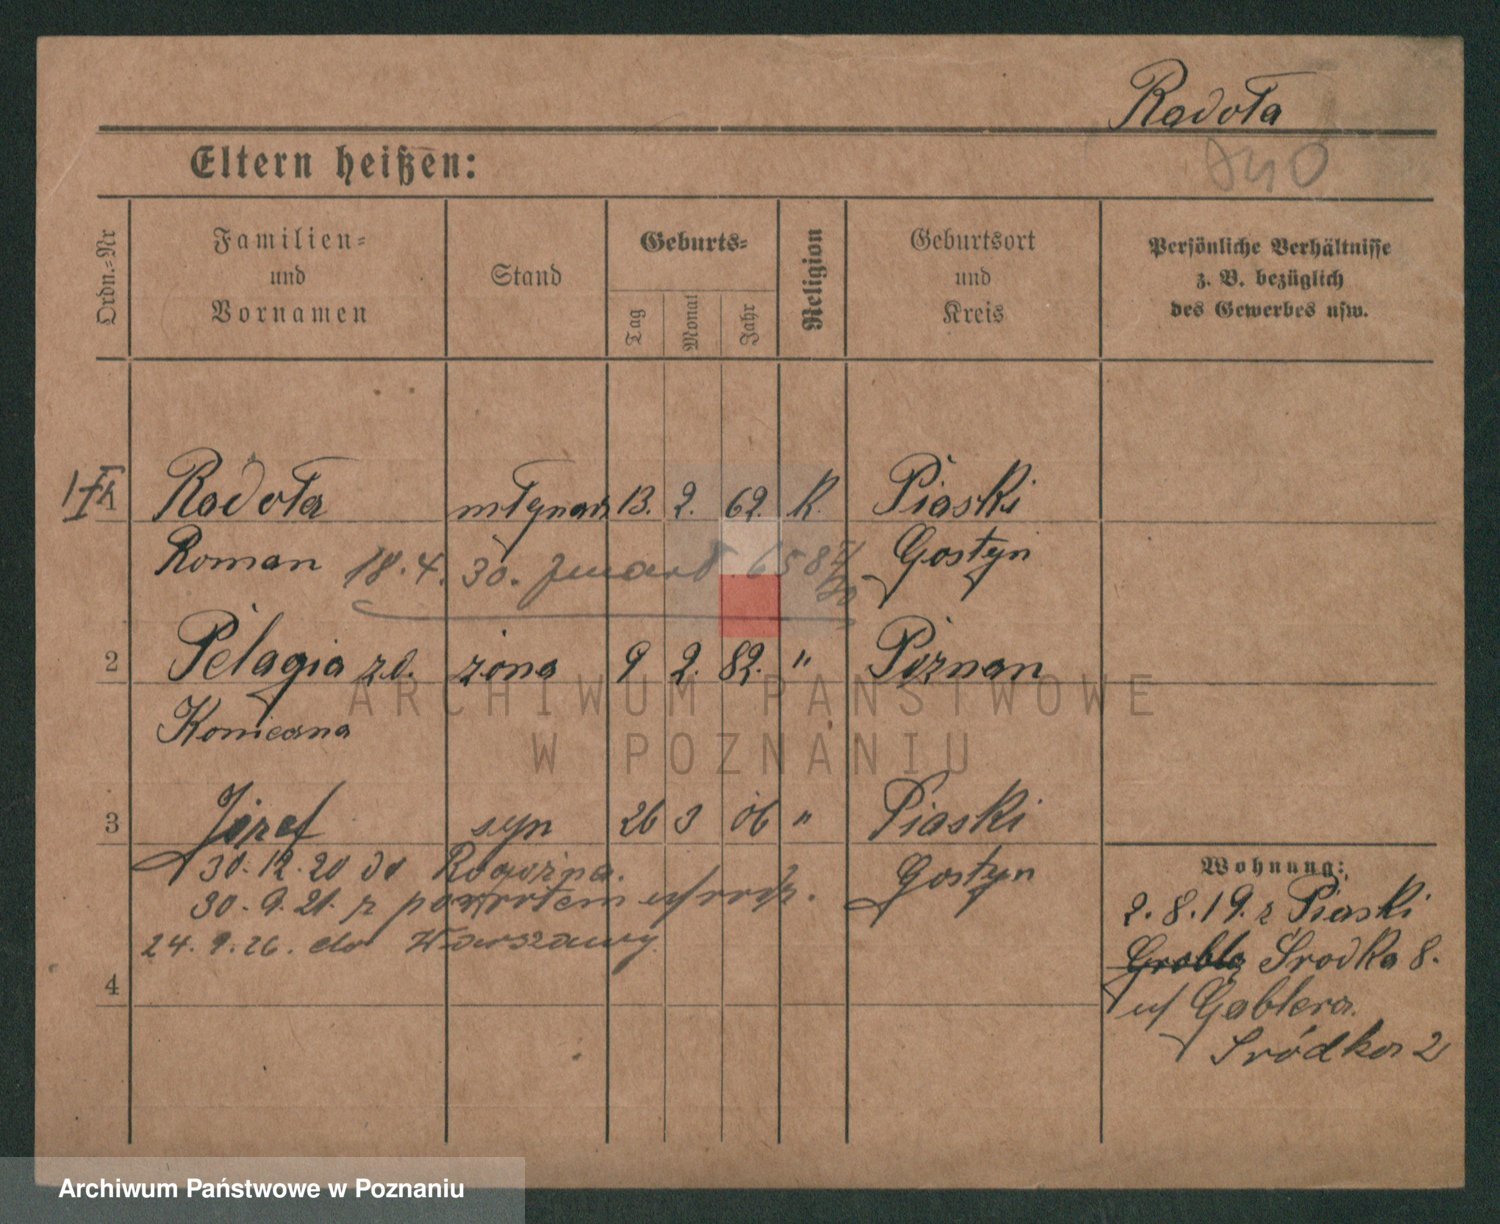 Radoła
Eltern heißen:
Ordn.-Nr
Familien-
und
Vornamen
Stand
Geburts-
Tag
Monat
Jahr
Religion
Geburtsort
und
Kreis
Persönliche Verhältnisse
z. B. bezüglich
des Gewerbes usw.
1 Radoła młynarz 13. 2. 62. K. Piaski
Roman 18.4.30. zmarł 658 Gostyń
2 Pelagia zd. żona 9 2. 82. " Poznań
Konieczna
ARCHIWUM PAŃSTWOWE
W POZNANIU
3 Józef syn 26 3 06 " Piaski
30.12.20 do Rogoźna. Gostyń
30.9.21. z powrotem
24.9.26. do Warszawy.
4
Wohnung:
2.8.19. z Piaski
Grobla Środka 8.
u/ Gablera.
Śródka 2
Archiwum Państwowe w Poznaniu